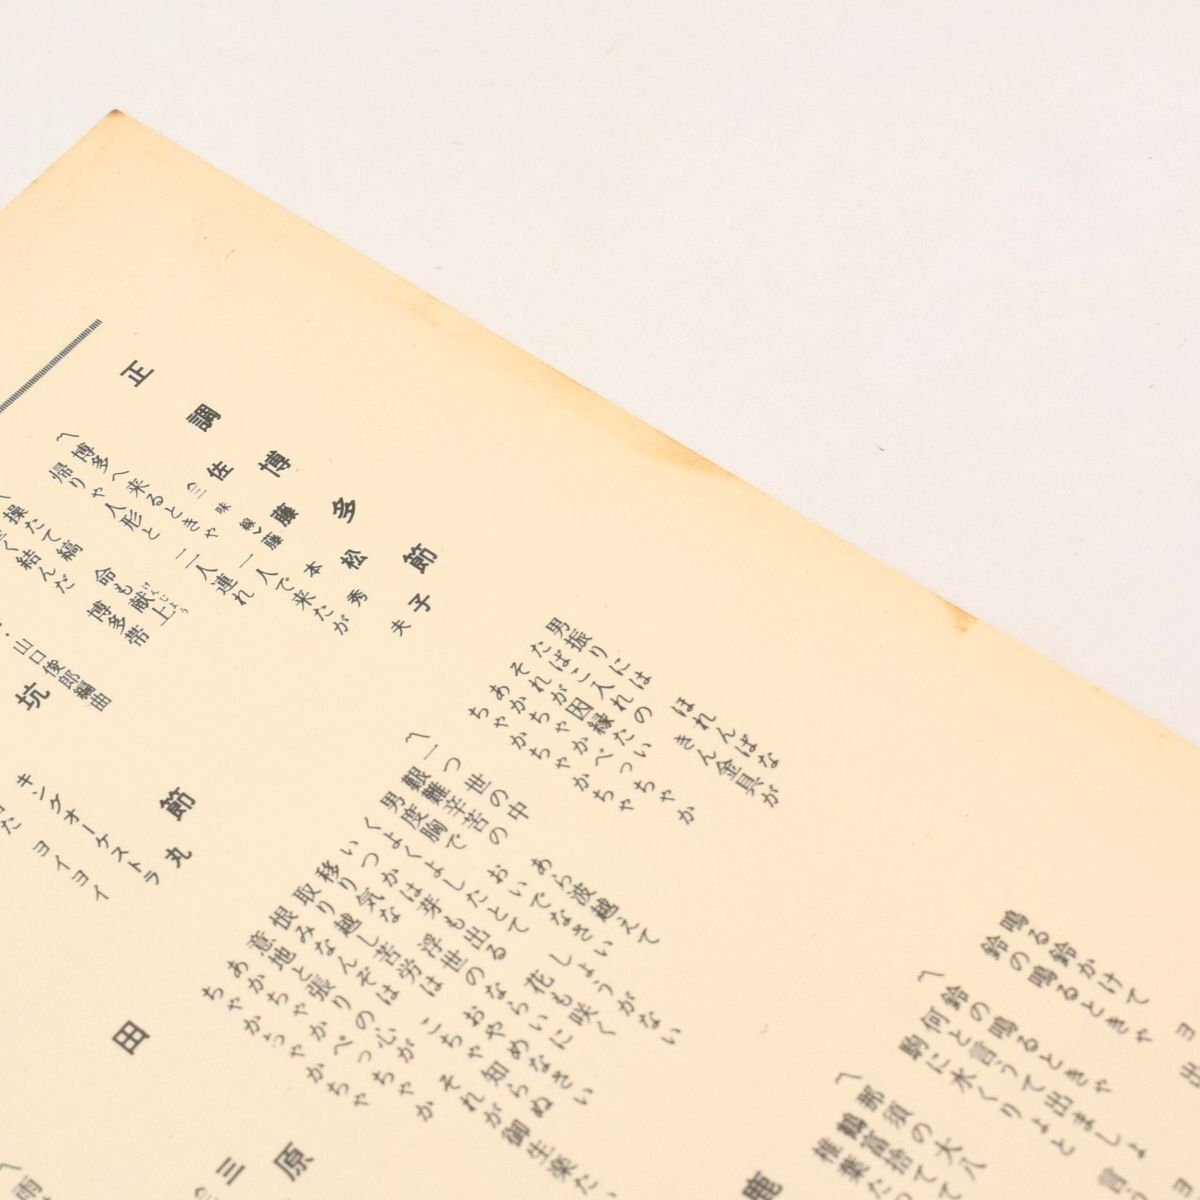 正調博多節
佐藤松子
(三味線) 藤本秀夫
〽博多へ来るときゃ 一人で来たが
帰りゃ人形と 二人連れ
操たて縞 命も献上
けんじょう
く結んだ 博多帯
山口俊郎編曲
坑 節
丸
キングオーケストラ
ヨイヨイ
男振りには ほれんばな
たばこ入れの ぎん金具が
そればが因縁たい
あかちゃかべっちゃか
ちゃかちゃかちゃ
〽一つ世の中
艱難辛苦の あら波越えて
男度胸で おいでなさい
くよくよしたとて しょうがない
いつかは芽も出る 花も咲く
移り気な浮世の ならいに
取り越し苦労は おやめなさい
恨みなしゃんぞ こちゃ知らぬ
意地と張りの心が それが御生楽たい
あかちゃかべっちゃか
ちゃかちゃかちゃ
田 原
三
鳴る鈴かけて
鈴の鳴るときゃ
〽鈴の鳴るときゃ
何と言うて出ましょ
駒に水くりょと 言
〽那須の大八
鶴富捨てて
椎葉た
鹿